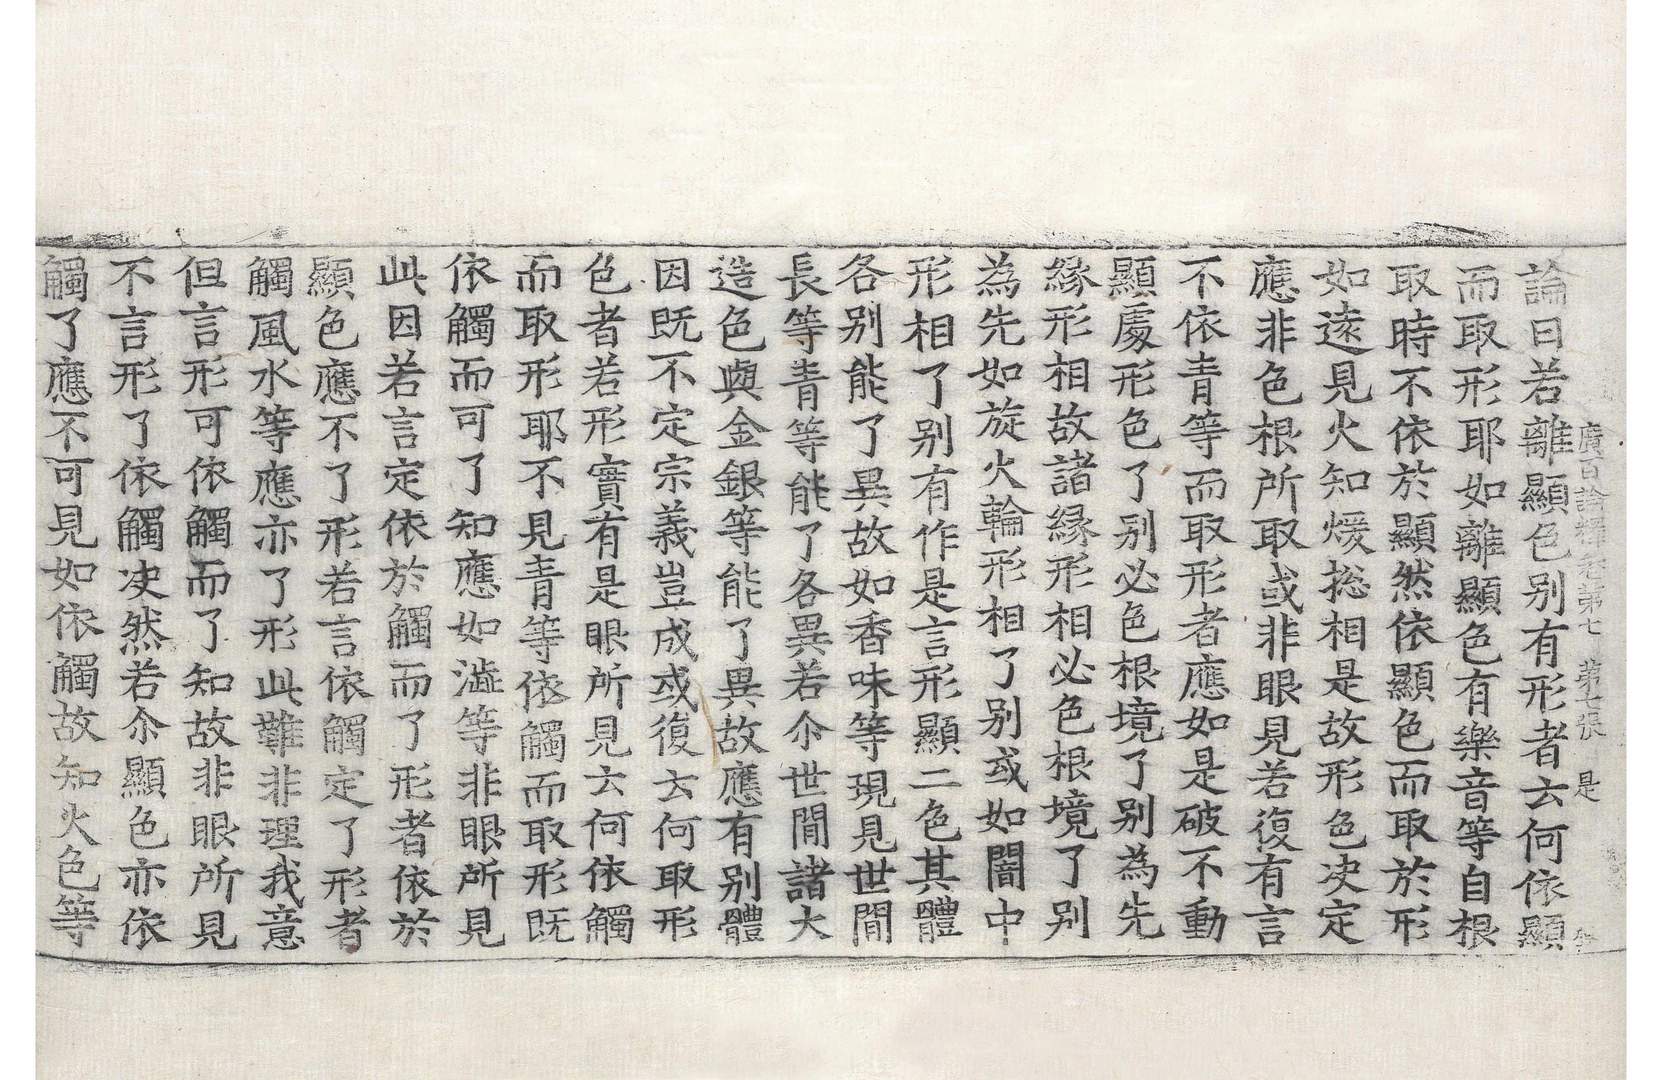 廣百論釋卷第七 第七張 是
論曰若離顯色別有形者云何依顯
而取形耶如離顯色有樂音等自根
取時不依於顯然依顯色而取於形
如遠見火知煖揔相是故形色决定
應非色根所取或非眼見若復有言
不依青等而取形者應如是破不動
顯處形色了别必色根境了别為先
緣形相故諸緣形相必色根境了别
為先如旋火輪形相了别或如闇中
形相了别有作是言形顯二色其體
各别能了異故如香味等現見世間
長等青等能了各異若尒世間諸大
造色與金銀等能了異故應有别體
因既不定宗義豈成或復云何取形
色者若形實有是眼所見云何依觸
而取形耶不見青等依觸而取形既
依觸而可了知應如澁等非眼所見
此因若言定依於觸而了形者依於
顯色應不了形若言依觸定了形者
觸風水等應亦了形此難非理我意
但言形可依觸而了知故非眼所見
不言形了依觸决然若尒顯色亦依
觸了應不可見如依觸故知火色等